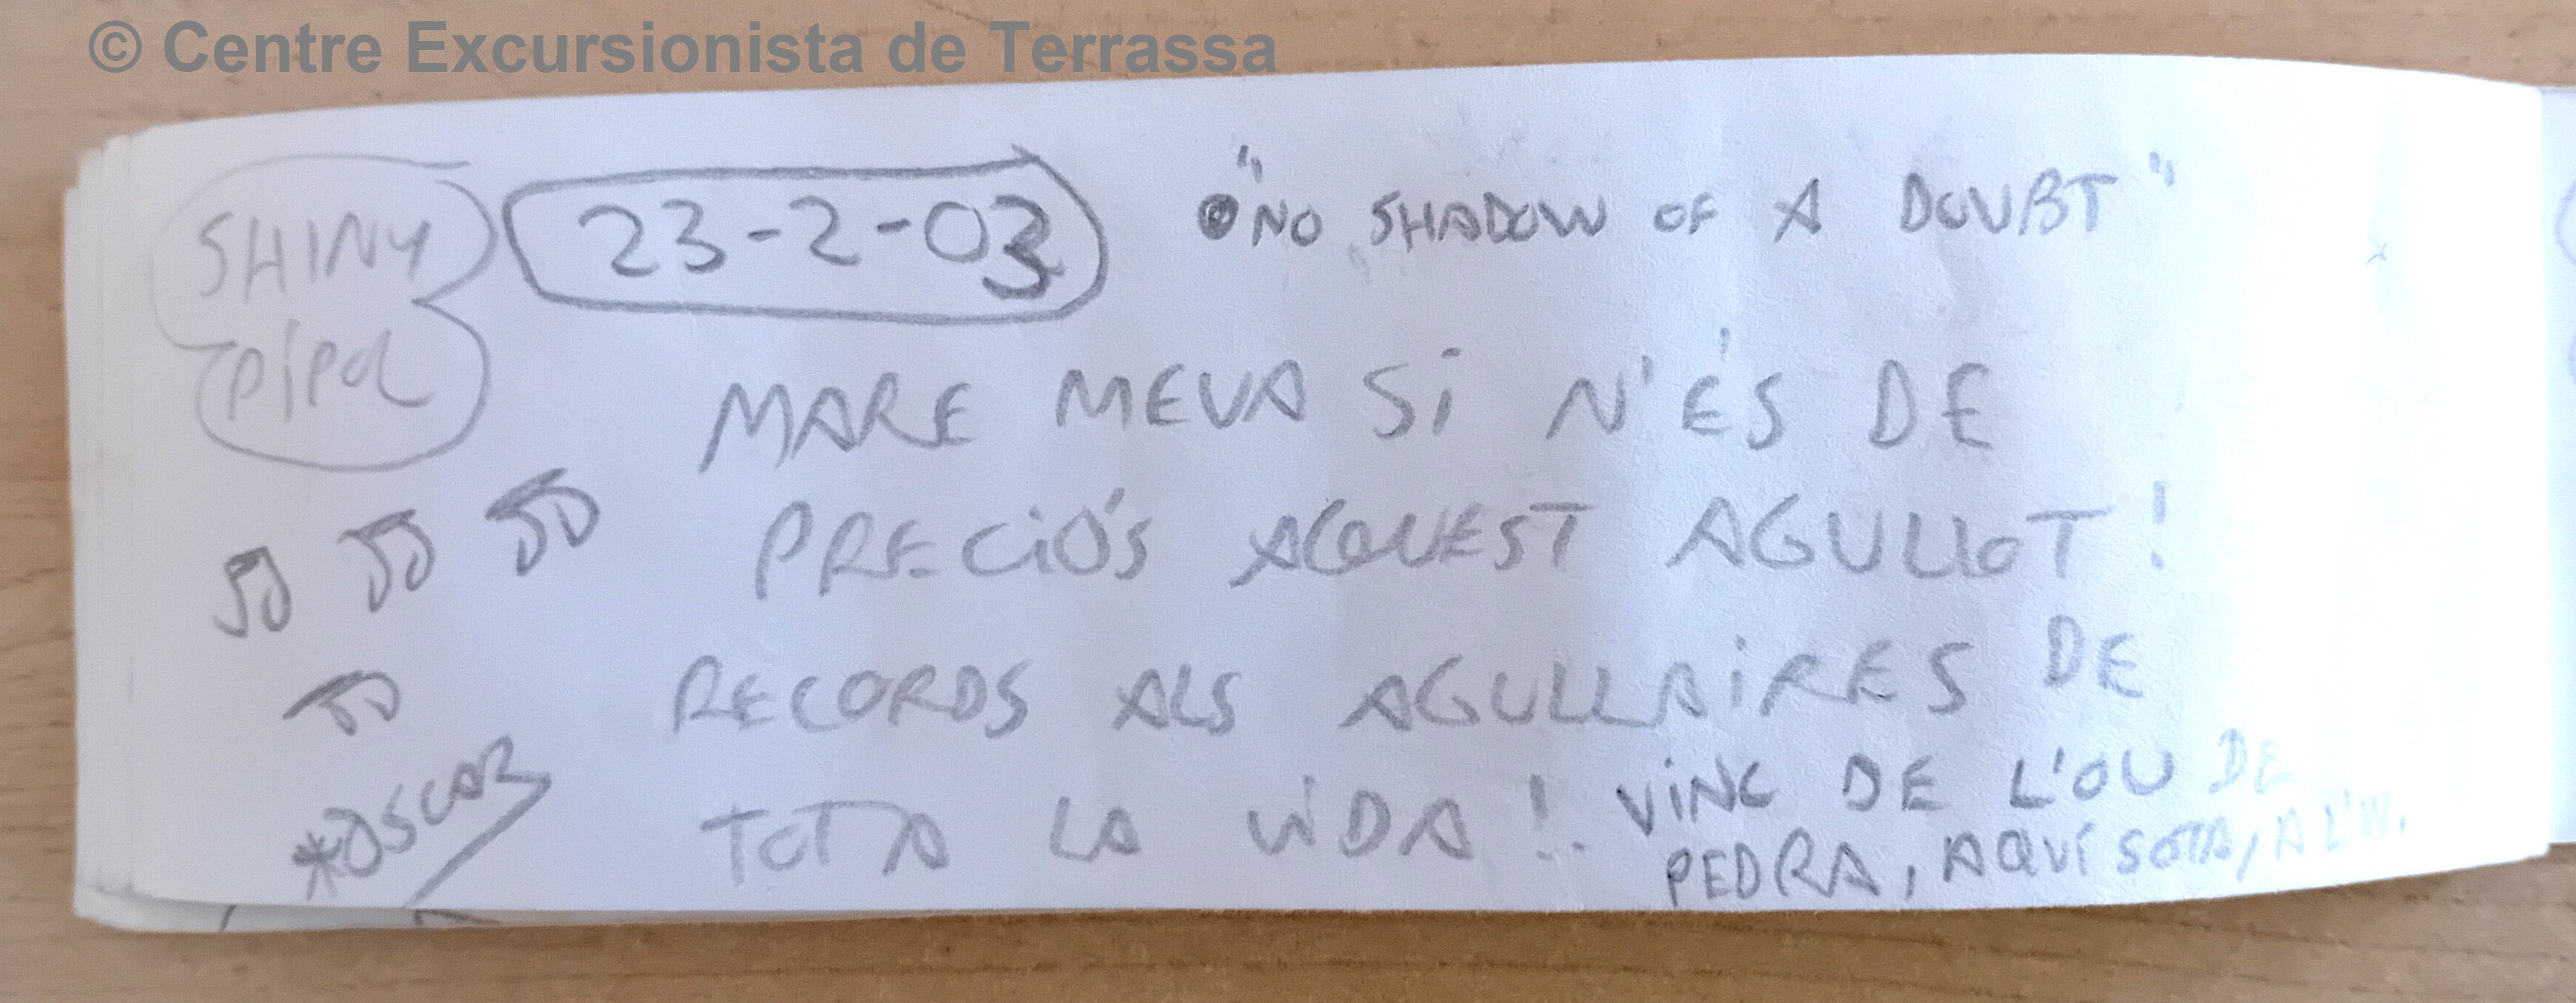 © Centre Excursionista de Terrassa
SHINY
PÍPOL
23-2-03
"NO SHADOW OF A DOUBT"
MARE MEVA SI N'ÉS DE
PRECIÓS AQUEST AGULLOT!
RECORDS ALS AGULLAIRES DE
TOTA LA VIDA!.
VINC DE L'OU DE
PEDRA, AQUÍ SOTA, A L'W.
*OSCAR